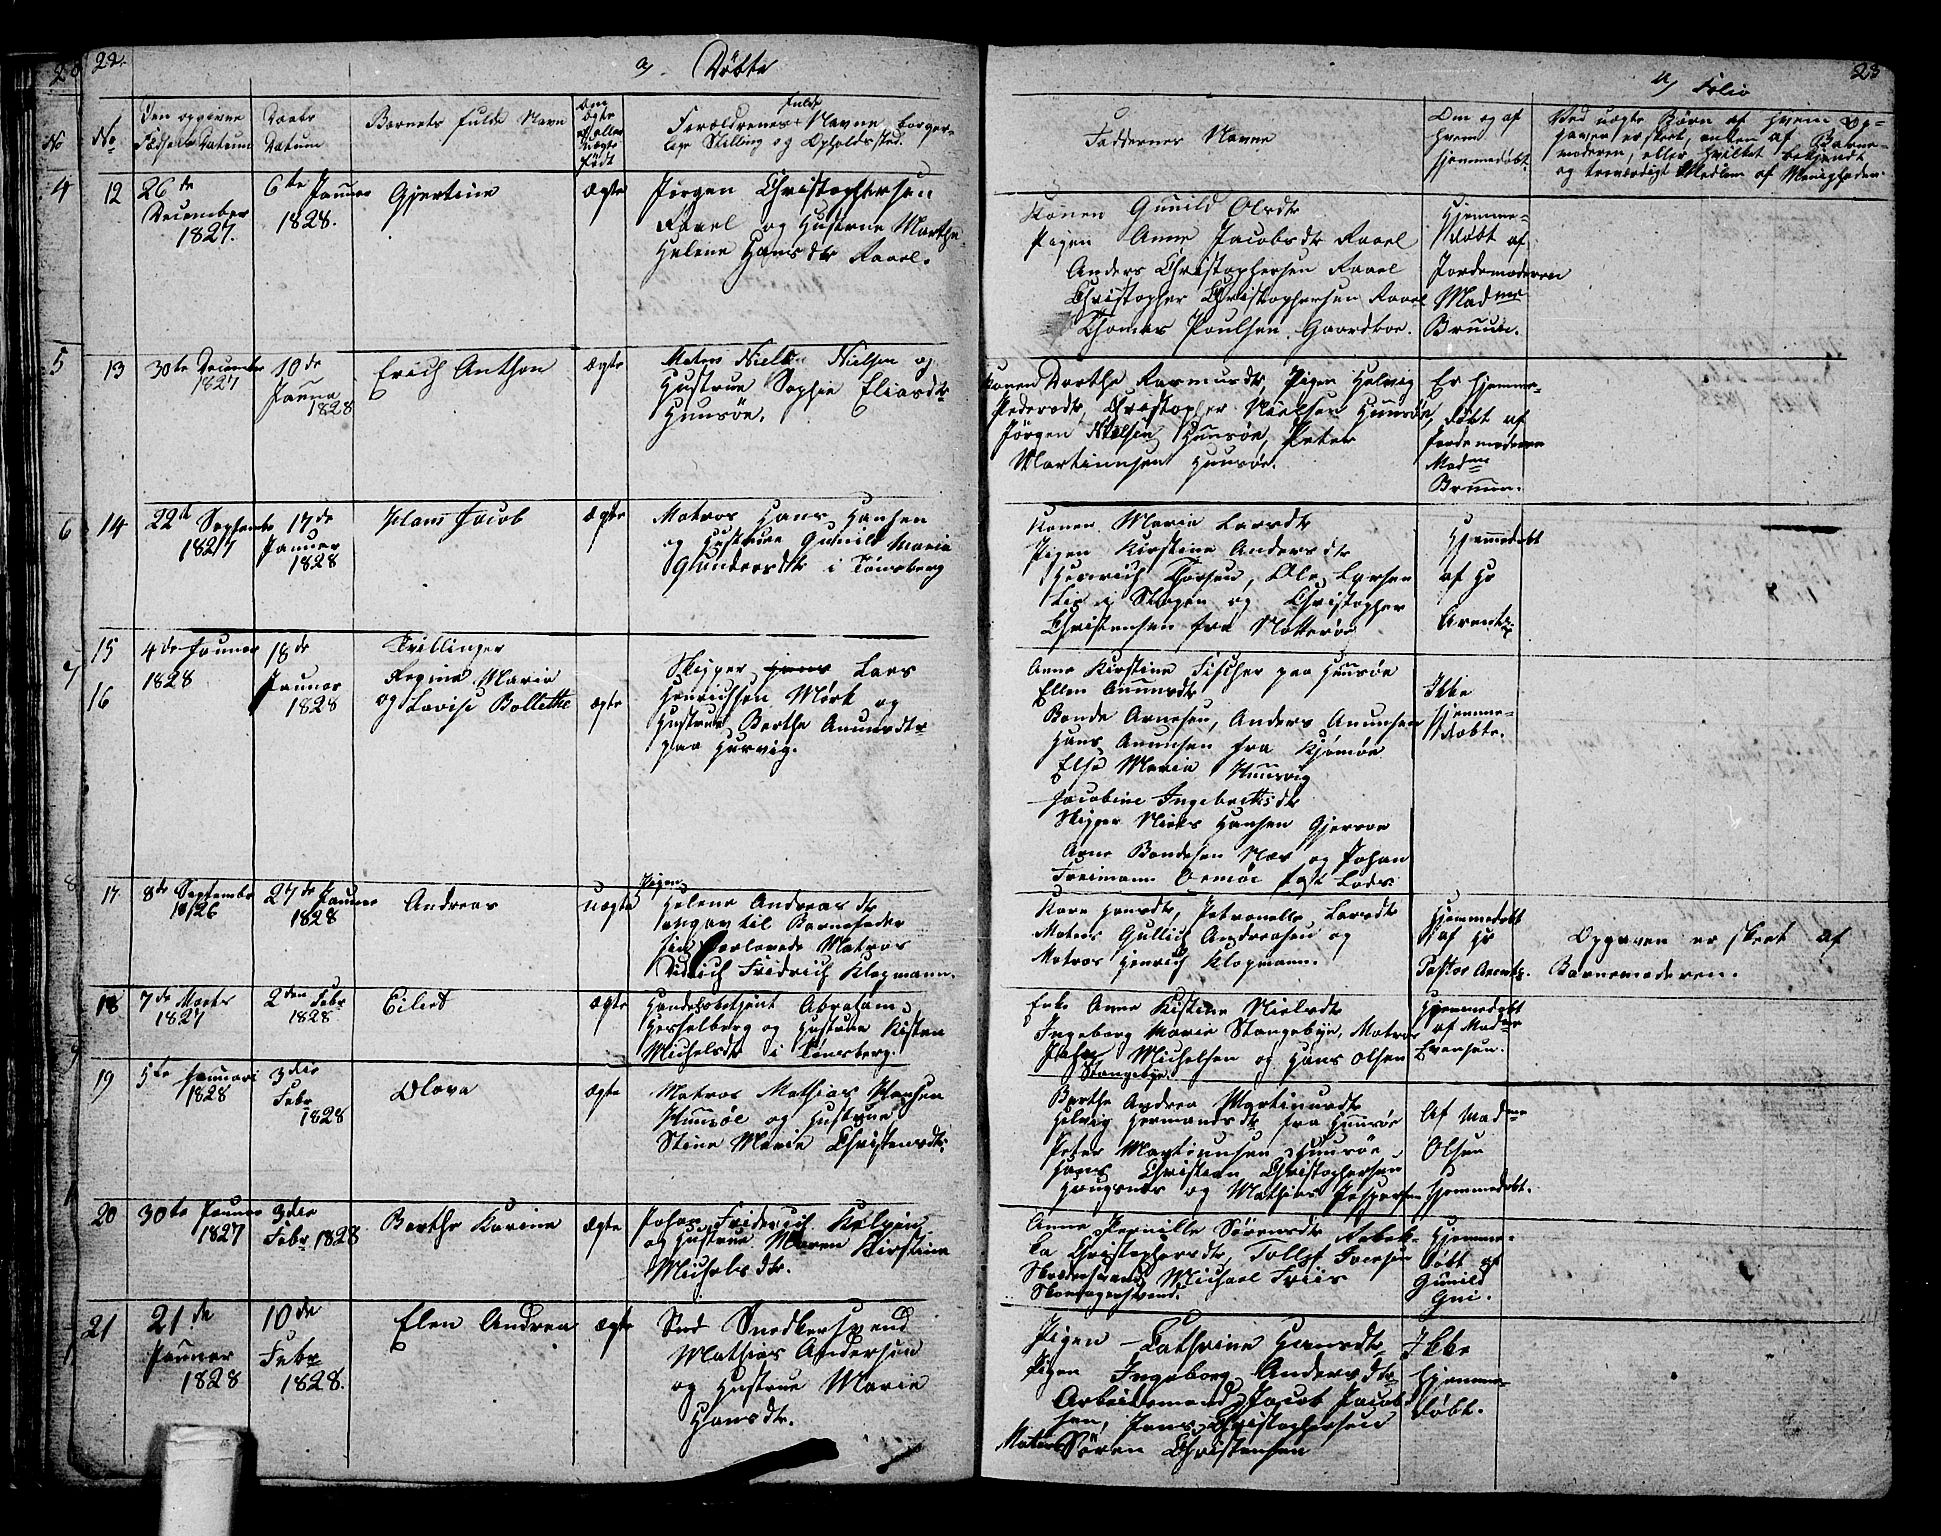 22.
a) Døbte
No
No
Den opgivne
Fødsels Datum
Daabs
Datum
Barnets fulde Navn
Om
ægte
eller
uægte
født
Forældrenes fulde Navne borger-
lige Stilling og Opholdssted.
4
12
26de
December
1827.
6te Januar
1828.
Gjertine
ægte
Jørgen Christophersen
Ravel og Hustrue Marthe
Helene Hansdtr Ravel.
5
13
30te December
1827
10de
Janua
1828
Erich Anthon
ægte
Matros Niels Nielsen og
Hustrue Sophie Eliasdtr
Huusøe.
6
14
22de September
1827
17de
Januar
1828
Hans Jacob
ægte
Matros Hans Hansen
og Hustrue Gunild Maria
Gundersdtr i Tønsberg
7
15
16
4de Januar
1828
18de
Januar
1828
Tvillinger
Regine Maria
og Lovise Bollette
ægte
Skipper Lars
Henrichsen Mørk og
Hustrue Berthe Anunsdtr
paa Hurvig.
8
17
8de September
1826
27de Januar
1828
Andreas
uægte
Pigen
Helene Andreasdtr
angav til Barnefader
sin forlovede Matros
Didrich Fridrich Klopmann.
18
7de Marts
1827
2den Febr
1828
Eilert
ægte
Handelsbetjent Abraham
Hesselberg og Hustrue Kisten
Michelsdtr i Tønsberg.
9
19
5te Januari
1828
3die
Febr
1828
Olava
ægte
Matros Mathias Hansen
Huusøe og Hustrue
Stine Marie Christensdtr
20
30te Januar
1827
3die
Febr 1828
Berthe Karine
ægte
Johan Friderich
og Hustrue Maren Kirstine
Michelsdtr.
21
21de
Januar
1828
10de
Febr
1828.
Elen Andrea
ægte
Snedkersvend
Mathias Andersen
og Hustrue Marie
Hansdtr.
a) Folio
23
Faddernes Navne
Om og af
hvem
hjemmedøbt.
Ved uægte Børn af hvem Op-
gaven er skeet, enten af Barne-
moderen, eller hvilket bekjendt
og troværdigt Medlem af Menigheden
Konen Gunild Olsdtr
Pigen Anne Jacobsdtr Ravel
Anders Christophersen Ravel
Christopher Christophersen Ravel
Thomas Poulsen Gaardboe.
Hjemme-
døbt af
Jordemoderen
Madme
Bruun.
Konen Dorthe Rasmusdtr, Pigen Helvig
Pedersdtr, Christopher Nielsen Huusøe,
Jørgen Nielsen Huusøe, Peter
Martinusen Huusøe.
Er hjemme-
døbt af
Jordemoderen
Madme
Bruun.
Konen Maria Larsdtr
Pigen Kirstine Andersdtr
Henrich Thorsen, Ole Larsen
Lie i Slagen og Christopher
Christensen fra Nøtterøe
Hjemmedøbt
af Hr
Arentz
Anne Kirstine Fischer paa Huusøe
Ellen Anunsdtr
Bonde Arnesen, Anders Anunsen
Hans Anunsen fra Kjømøe
Else Maria Huusvig
Jacobine Ingebretsdtr
Skipper Niels Hansen Gjersøe
Arne Bondesen Næs og Johan
Freimann Ormøe Lods
Ikke
hjemme-
døbte.
Kare Hansdtr, Petronelle Larsdtr
Matros Gullich Andreasen og
Matros Henrich Klopmann.
Hjemmedøbt
af Hr
Pastor Arentz.
Opgaven er skeet af
Barnemoderen.
Enke Anne Kistine Nielsdtr
Ingeborg Marie Stangebye, Matros
Johan Michelsen og Hans Olsen
Stangebye.
Hjemmedøbt
af Madme
Evensen.
Berthe Andrea Martinusdtr
Helvig Hermandsdtr fra Huusøe
Peter Martinusen Huusøe
Hans Christian Christophersen
Hougsnæs og Mathias Jespersen
Af Madme
Olsen
Hjemmedøbt.
Anne Pernille Sørensdtr Rebek-
ka Christophersdtr, Tollef Iversen
Skrædersvend Michael Friis
Skomagersvend.
Hjemme-
døbt af
Gunild
Gui.
Pigen Cathrine Hansdtr
Pigen Ingeborg Andersdtr
Arbeidsmand Jacob Jacob
sen, Jens Christophersen
Matros Søren Christensen
Ikke
hjemme-
døbt.